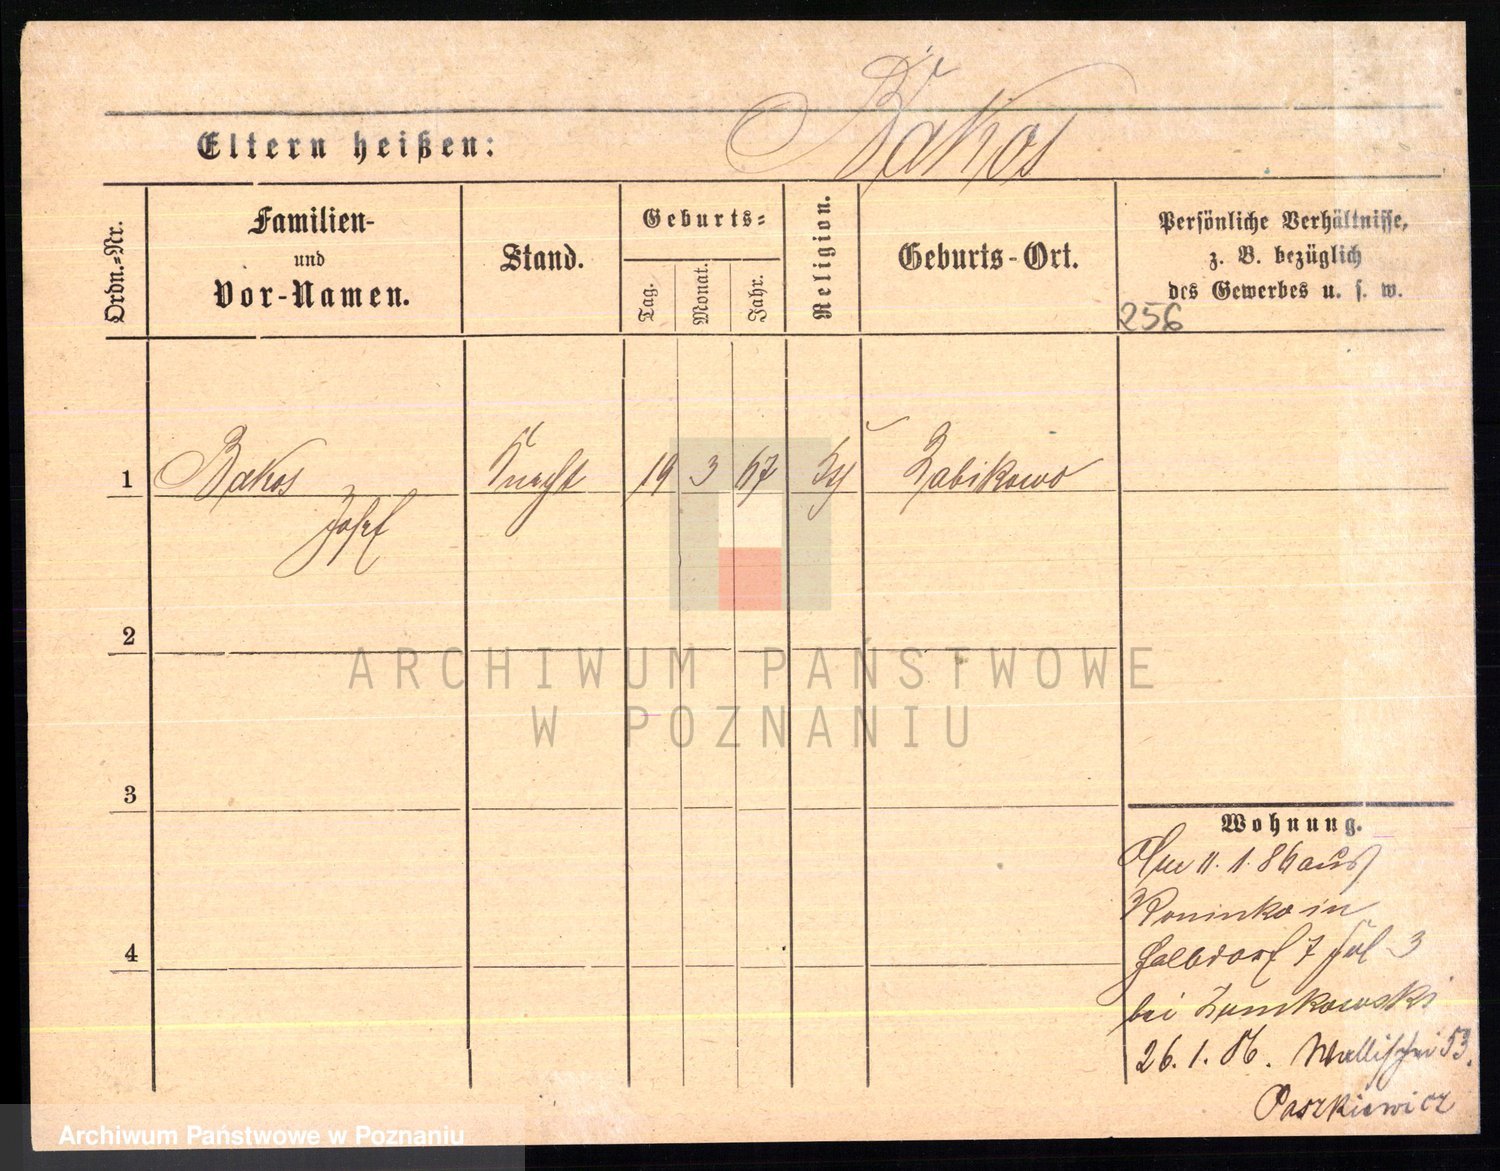 Bakos
Eltern heißen:
Ordn.-Nr.
Familien-
und
Vor-Namen.
Stand.
Geburts-
Tag.
Monat.
Jahr.
Religion.
Geburts-Ort.
Persönliche Verhältnisse,
z. B. bezüglich
des Gewerbes u. s. w.
256
1
Bakos
Josef
Knecht
19
3
67
Żabikowo
2
3
4
Wohnung.
Am 11. 1. 86 aus
Koninko in
Halbdorf 7 3
bei
26. 1. 86. Wallischei 53.
Paszkiewicz
ARCHIWUM PAŃSTWOWE
W POZNANIU
Archiwum Państwowe w Poznaniu